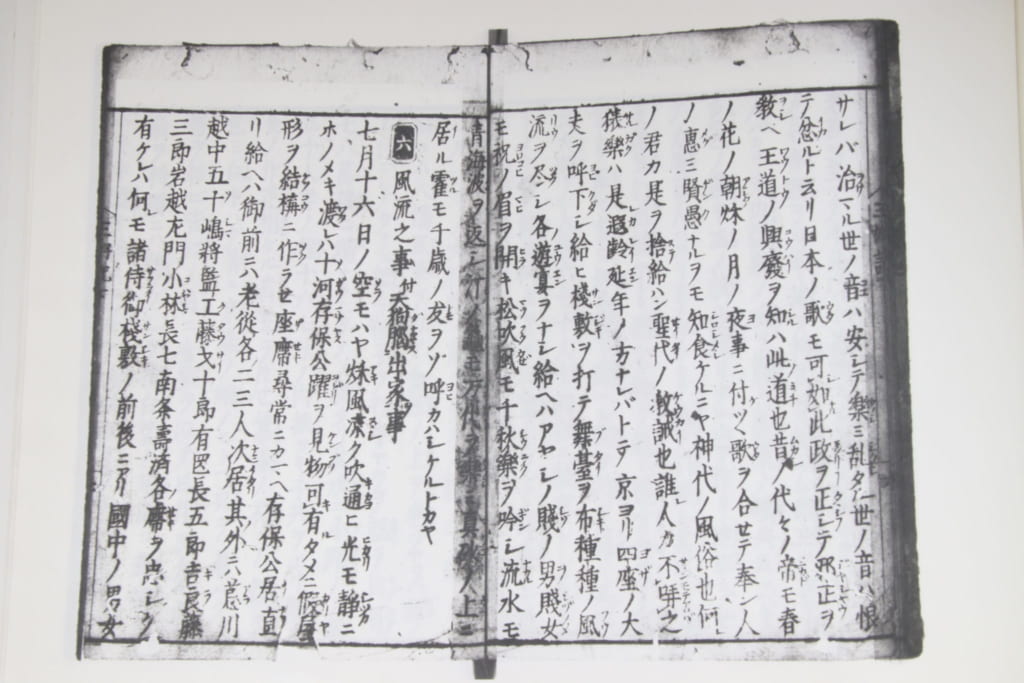 サレバ治マル世ノ音ハ安シテ樂ミ乱タル世ノ音ハ恨
テ忿ルト云リ日本ノ歌モ可如此政ヲ正シテ邪正ヲ
教ヘ王道ノ興廢ヲ知ハ此道也昔ノ代々ノ帝モ春
ノ花ノ朝秌ノ月ノ夜事ニ付ツヽ歌ヲ合セテ奉ン人
ノ惠ミ賢愚ナルヲモ知食ケルニヤ神代ノ風俗也何
ノ君カ是ヲ捨給ハン聖代ノ教誡也誰人カ不哢之
猿樂ハ是遐齡延年ノ方ナレバトテ京ヨリ四座ノ大
夫ヲ呼下シ給ヒ棧敷ヲ打テ舞臺ヲ布種種ノ風
流ヲ尽シ各遊宴ヲナシ給ヘハアヤシノ賤ノ男賤女
モ祝ノ眉ヲ開キ松吹風モ千秋樂ヲ吟シ流水モ
青海波ヲ返シ汀ノ亀モ万代ヲ樂ミ真砂ノ上ニ
居ル霍モ千歳ノ友ヲゾ呼カハシケルトカヤ
六 風流之事付天狗騒出家事
七月十六日ノ空モハヤ秌風凉ク吹通ヒ光モ静ニ
ホノメキ渡レハ十河存保公躍ヲ見物可有タメニ假屋
形ヲ結構ニ作ラセ座席尋常ニカマヘ存保公居直
リ給ヘハ御前ニハ老從各二三人次居其外ニハ荵川
越中五十嶋將監工藤戈十郎有罡長五郎吉良藤
三郎岩越左門小林長七南条壽済各席ヲ忠シク
有ケレハ何モ諸侍御棧敷ノ前後ニアリ國中ノ男女